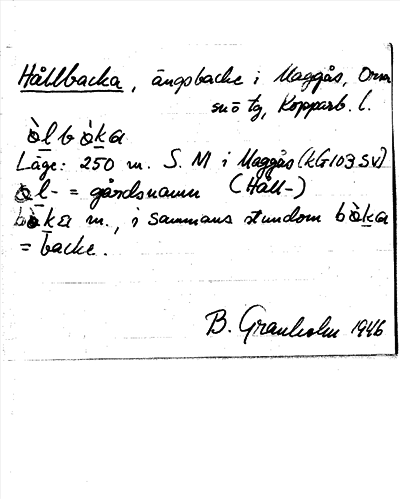 Hållbacka, ängsbacke i Maggås, Orsa
snö tg, Kopparb. l.
òlbòka
Läge: 250 m. S. M i Maggås (KG103 SV)
òl- = gårdsnamn (Håll-)
bòka m., i sammans stundom bòka
= backe.
B. Granholm 1946